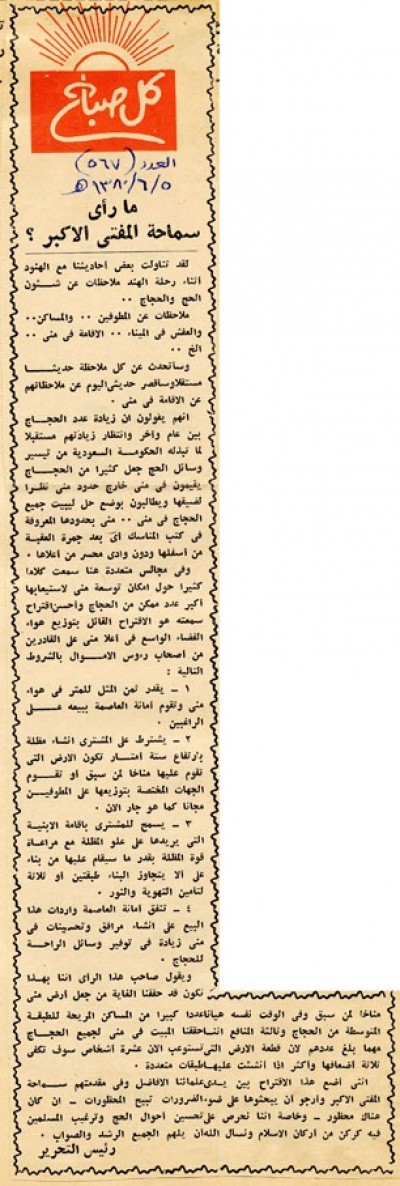 كل صباح
العدد (٥٦٧)
١٣٨٠/٦/٥هـ
ما رأى
سماحة المفتى الاكبر ؟
لقد تناولت بعض أحاديثنا مع الهنود
أثناء رحلة الهند ملاحظات عن شئون
الحج والحجاج ٠٠
ملاحظات عن المطوفين ٠٠ والمساكن٠٠
والعفش فى الميناء ٠٠ الاقامة فى منى ٠٠
الخ ٠٠
وسأتحدث عن كل ملاحظة حديثا
مستقلا وسأقصر حديثى اليوم عن ملاحظاتهم
عن الاقامة فى منى ٠
انهم يقولون ان زيادة عدد الحجاج
بين عام وآخر وانتظار زيادتهم مستقبلا
لما تبذله الحكومة السعودية من تيسير
وسائل الحج جعل كثيرا من الحجاج
يقيمون فى منى خارج حدود منى نظرا
لضيقها ويطالبون بوضع حل ليبيت جميع
الحجاج فى منى ٠٠ منى بحدودها المعروفة
فى كتب المناسك أى بعد جمرة العقبة
من أسفلها ودون وادى محسر من أعلاها ٠
وفى مجالس متعددة هنا سمعت كلاما
كثيرا حول امكان توسعة منى لاستيعابها
أكبر عدد ممكن من الحجاج وأحسن اقتراح
سمعته هو الاقتراح القائل بتوزيع هواء
الفضاء الواسع فى أعلا منى على القادرين
من أصحاب رءوس الاموال بالشروط
التالية :
١ ــ يقدر ثمن المثل للمتر فى هواء
منى وتقوم أمانة العاصمة ببيعه على
الراغبين ٠
٢ ــ يشترط على المشترى انشاء مظلة
بارتفاع ستة أمتار تكون الارض التى
تقوم عليها مناخا لمن سبق أو تقوم
الجهات المختصة بتوزيعها على المطوفين
مجانا كما هو جار الآن ٠
٣ ــ يسمح للمشترى باقامة الابنية
التى يريدها على علو المظلة مع مراعاة
قوة المظلة بقدر ما سيقام عليها من بناء
على ألا يتجاوز البناء طبقتين أو ثلاثة
لتأمين التهوية والنور ٠
٤ ــ تنفق أمانة العاصمة واردات هذا
البيع على انشاء مرافق وتحسينات فى
منى زيادة فى توفير وسائل الراحة
للحجاج ٠
ويقول صاحب هذا الرأى اننا بهذا
نكون قد حققنا الغاية من جعل أرض منى
مناخا لمن سبق وفى الوقت نفسه هيأنا عددا كبيرا من المساكن المريحة للطبقة
المتوسطة من الحجاج وثالثة المنافع اننا حققنا المبيت فى منى لجميع الحجاج
مهما بلغ عددهم لان قطعة الارض التى تستوعب الآن عشرة أشخاص سوف تكفى
ثلاثة أضعافها وأكثر اذا أنشئت عليها طبقات متعددة ٠
اننى أضع هذا الاقتراح بين يدى علمائنا الافاضل وفى مقدمتهم سماحة
المفتى الاكبر وأرجو أن يبحثوها على ضوء الضرورات تبيح المحظورات ــ ان كان
هناك محظور ــ وخاصة اننا نحرص على تحسين أحوال الحج وترغيب المسلمين
فيه كركن من أركان الاسلام ونسأل الله أن يلهم الجميع الرشد والصواب ٠
رئيس التحرير